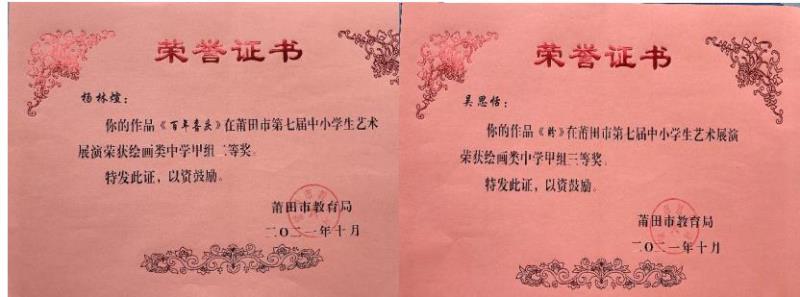 荣誉证书
杨林煊：
你的作品《百年香炎》在莆田市第七届中小学生艺术
展演荣获绘画类中学甲组二等奖。
特发此证，以资鼓励。
莆田市教育局
二〇二一年十月
荣誉证书
吴思恬：
你的作品《》在莆田市第七届中小学生艺术展演
荣获绘画类中学甲组三等奖。
特发此证，以资鼓励。
莆田市教育局
二〇二一年十月